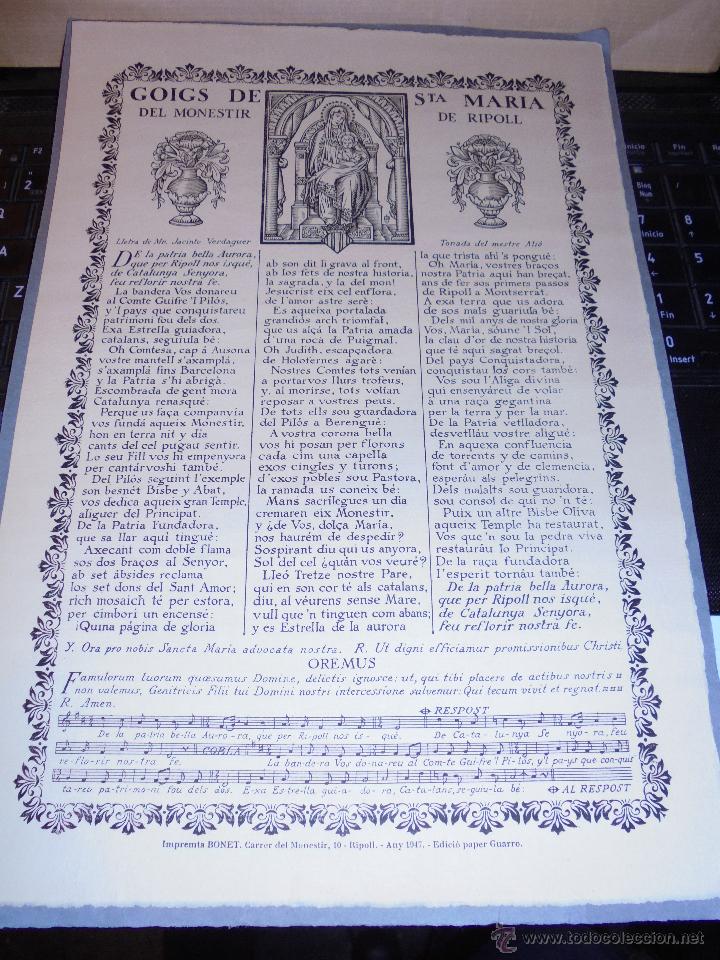 GOIGS DE STA MARIA
DEL MONESTIR DE RIPOLL
Lletra de Mn. Jacinto Verdaguer
Tonada del mestre Alió
DE la patria bella Aurora,
que per Ripoll nos isqué,
de Catalunya Senyora,
feu reflorir nostra fe.
La bandera Vos donareu
al Comte Guifre 'l Pilós,
y 'l pays que conquistareu
patrimoni fou dels dos.
Exa Estrella guiadora,
catalans, seguiula bé:
Oh Comtesa, cap á Ausona
vostre mantell s'axamplá,
s'axamplá fins Barcelona
y la Patria s'hi abrigá.
Escombrada de gent mora
Catalunya renasqué:
Perque us faça companyia
vos fundá aqueix Monestir,
hon en terra nit y dia
cants del cel pugau sentir.
Lo seu Fill vos hi empenyora
per cantárvoshi també.
Del Pilós seguint l'exemple
son besnét Bisbe y Abat,
vos dedica aqueix gran Temple,
aliguer del Principat.
De la Patria Fundadora,
que sa llar aquí tingué:
Axecant com doble flama
sos dos braços al Senyor,
ab set ábsides reclama
los set dons del Sant Amor;
rich mosaich té per estora,
per cimbori un encensé:
¡Quina página de gloria
ab son dit li grava al front,
ab los fets de nostra historia,
la sagrada, y la del mon!
Jesucrist eix cel enflora,
de l'amor astre serè:
Es aqueixa portalada
grandiós arch triomfal,
que us alçá la Patria amada
d'una roca de Puigmal.
Oh Judith, escapçadora
de Holofernes agaré:
Nostres Comtes tots venían
a portarvos llurs trofeus,
y, al morirse, tots volían
reposar a vostres peus.
De tots ells sou guardadora
del Pilós a Berengué:
A vostra corona bella
vos hi posan per florons
cada cim una capella
exos cingles y turons;
d'exos pobles sou Pastora,
la ramada us coneix bé:
Mans sacrílegues un dia
cremaren eix Monestir,
y ¿de Vos, dolça María,
nos haurém de despedir?
Sospirant diu qui us anyora,
Sol del cel ¿quán vos veuré?
Lleó Tretze nostre Pare,
qui en son cor té als catalans,
diu, al véurens sense Mare,
vull que 'n tinguen com abans;
y es Estrella de la aurora
la que trista ahí 's pongué:
Oh María, vostres braços
nostra Patria aquí han breçat,
ans de fer sos primers passos
de Ripoll a Montserrat.
A exa terra que us adora
de sos mals guariula bé:
Dels mil anys de nostra gloria
Vos, María, sóune 'l Sol,
la clau d'or de nostra historia
que té aquí sagrat breçol.
Del pays Conquistadora,
conquistau los cors també:
Vos sou l'Aliga divina
qui ensenyáreu de volar
à una raça gegantina
per la terra y per la mar.
De la Patria vetlladora,
desvetllàu vostre aligué:
En aqueixa confluencia
de torrents y de camins,
font d'amor y de clemencia,
esperáu als pelegrins.
Dels malalts sou guaridora,
sou consol de qui no 'n té:
Puix un altre Bisbe Oliva
aqueix Temple ha restaurat,
Vos que 'n sou la pedra viva
restauráu lo Principat.
De la raça fundadora
l'esperit tornáu també:
De la patria bella Aurora,
que per Ripoll nos isqué,
de Catalunya Senyora,
feu reflorir nostra fe.
V. Ora pro nobis Sancta María advocata nostra. R. Ut digni efficiamur promissionibus Christi.
OREMUS
Famulorum tuorum quæsumus Domine, delictis ignosce: ut, qui tibi placere de actibus nostris
non valemus, Genitricis Filii tui Domini nostri intercessione salvemur: Qui tecum vivit et regnat.
R. Amen.
RESPOST
De la pa-tria be-lla Au-ro-ra, que per Ri-poll nos is-qué. De Ca-ta-lu-nya Se nyo-ra, feu
COBLA
re-flo-rir nos-tra fe. La ban-de-ra Vos do-na-reu al Com-te Gui-fre 'l Pi-lós, y 'l pa-ys que con-quis
ta-reu pa-tri-mo-ni fou dels dos. E-xa Es-tre-lla gui-a-do-ra, Ca-ta-lans, se-guiu-la bé: AL RESPOST
Impremta BONET. Carrer del Monestir, 10 - Ripoll. - Any 1947. - Edició paper Guarro.
F2
Fin
Inicio
Insert
www.todocoleccion.net